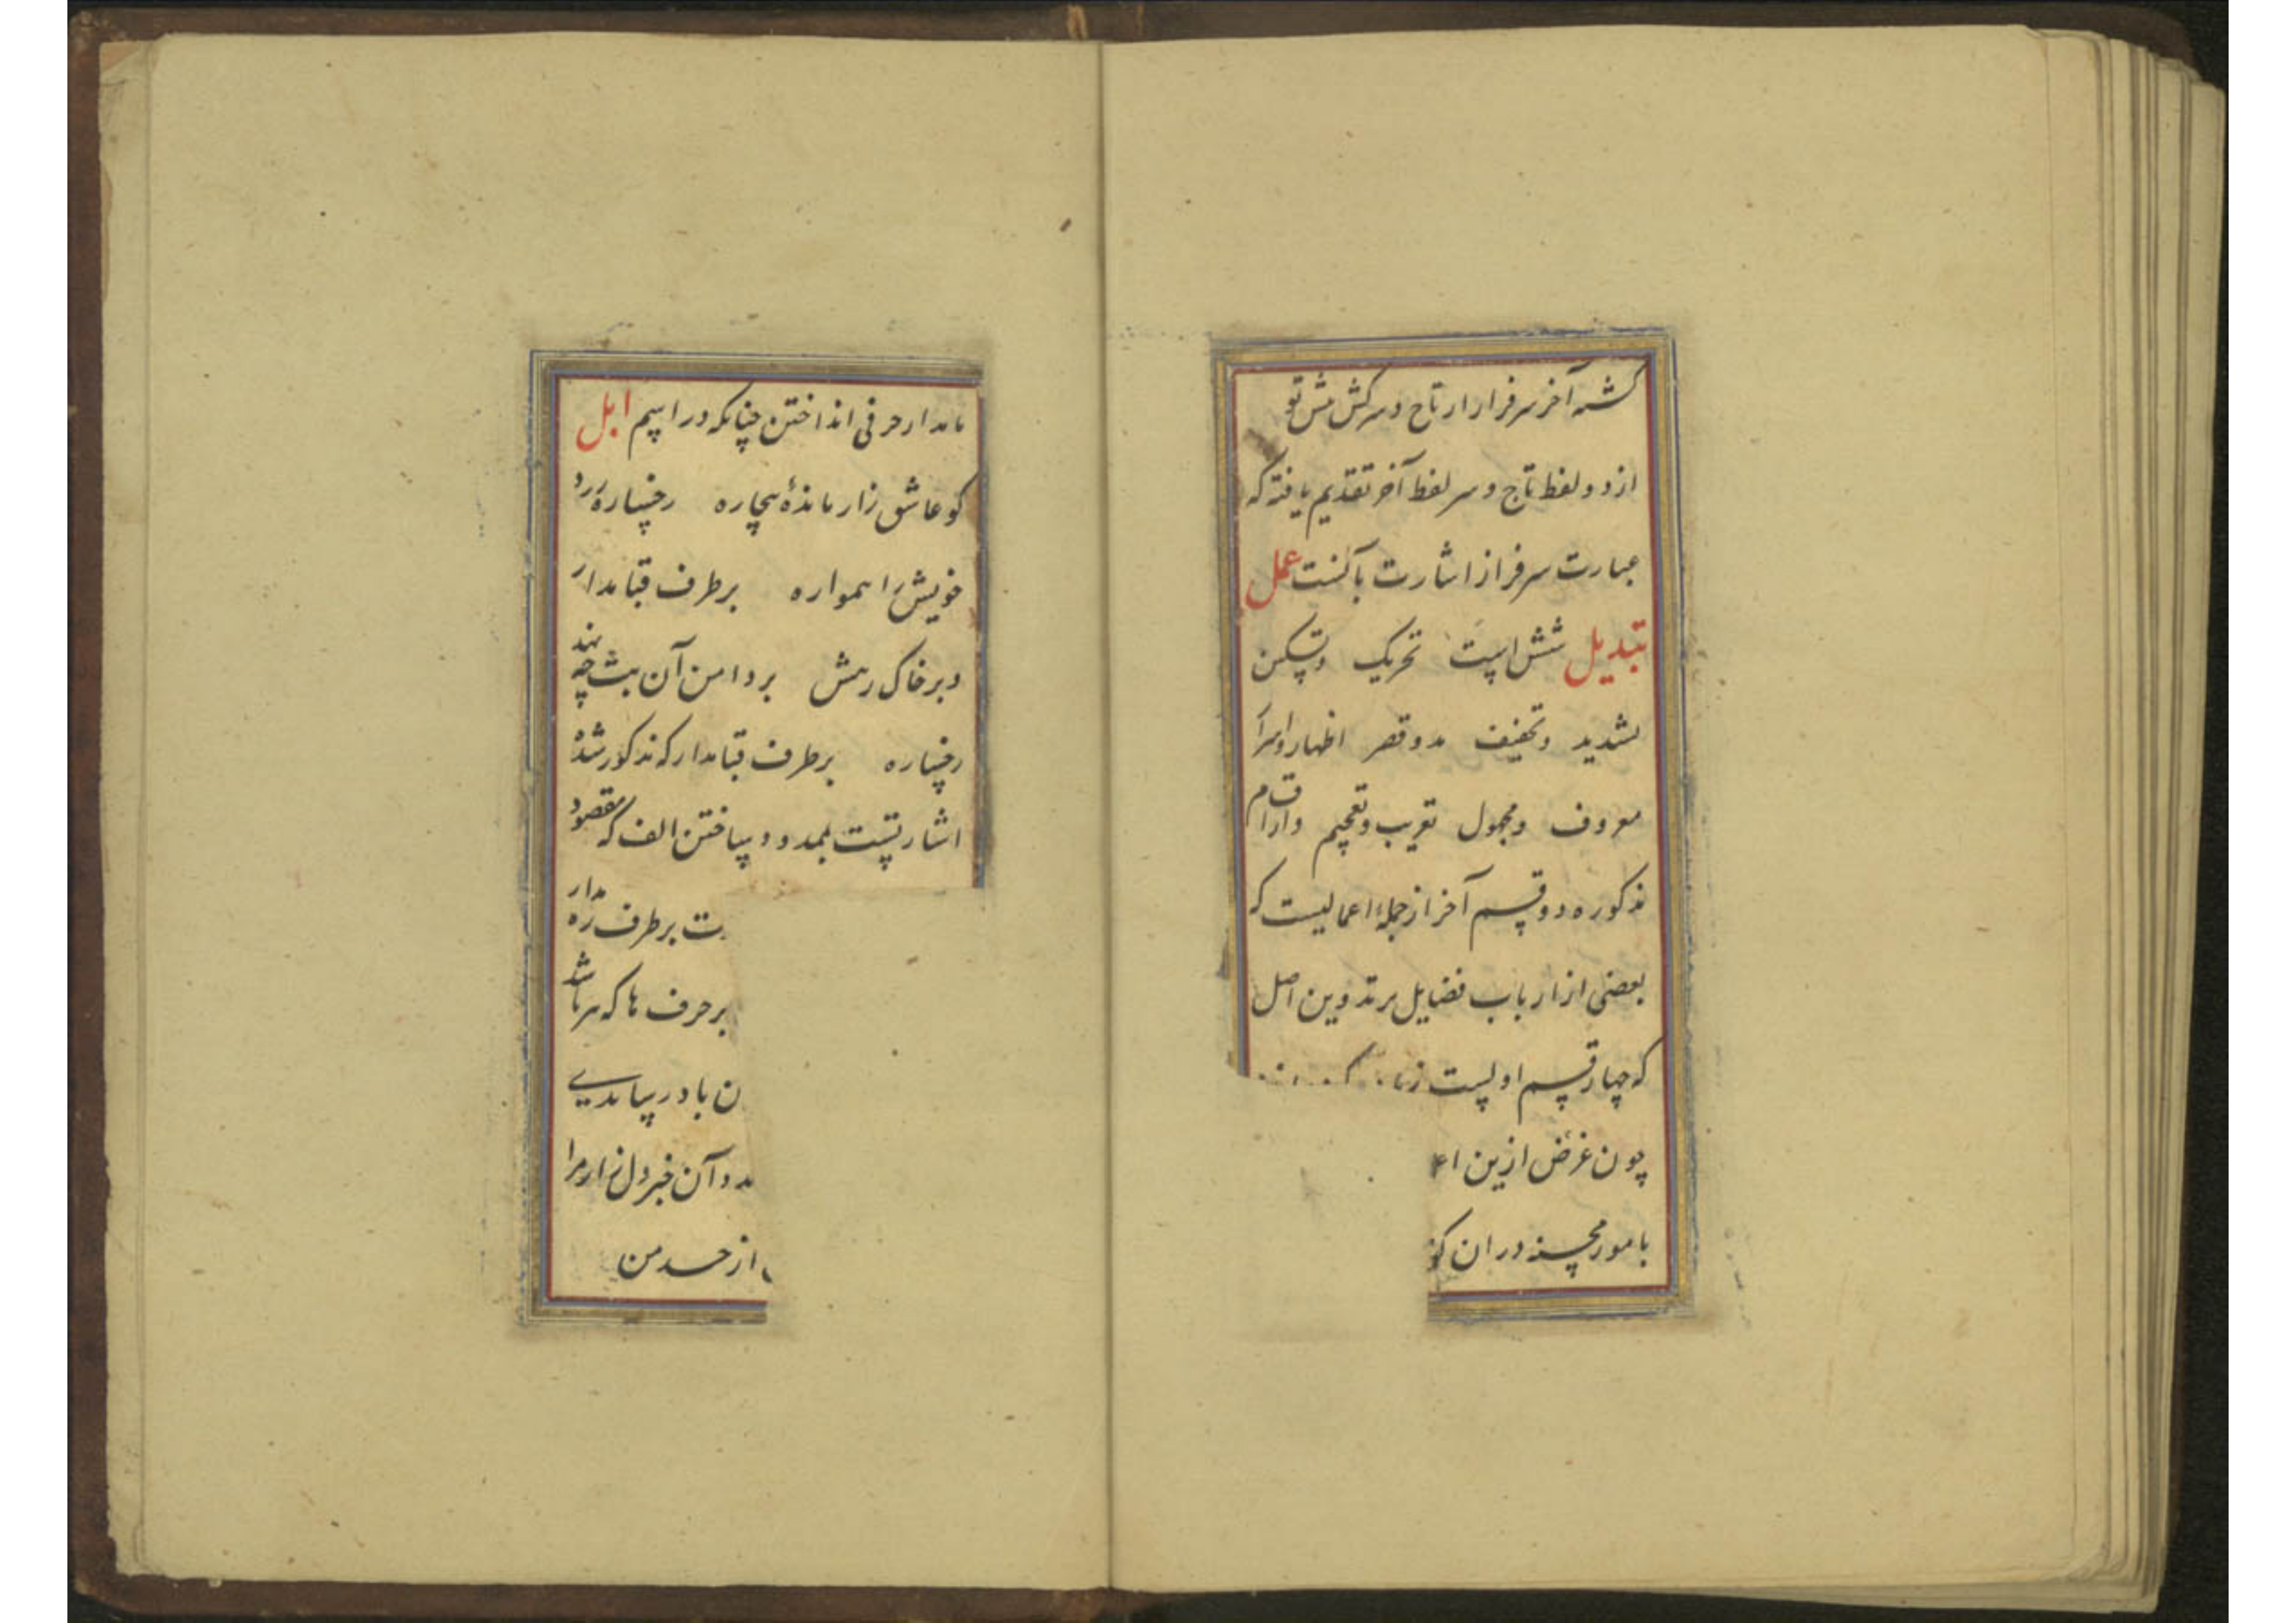 کشته آخر سرفراز از تاج و سرکش پیش تو
از دو لفظ تاج و سر لفظ آخر تقدیم یافته که
عبارت سرفراز اشارت بآنست عمل
تبدیل شش است تحریک و تسکین
تشدید و تخفیف مد و قصر اظهار و اسرار
معروف و مجهول تعریب و تعجیم و از اقسام
مذکوره دو قسم آخر از جمله اعمالیست که
بعضی از ارباب فضایل بر تدوین اصل
که چهار قسم اولیست
چون غرض ازین
بامور محسنه در ان
حرفی انداختن چنانکه در اسم ابل
کو عاشق زار مانده بیچاره رخساره زرد
خویش را همواره بر طرف قبا مدار
و بر خاک رهش بر دامن آن بت چه نهد
رخساره بر طرف قبا مدار که مذکور شده
اشارتست بممدود ساختن الف که مقصود
بر طرف زه مدار
بر حرف ها که سر باشد
باد رسانیدی
آن خبر دل زار مرا
از حسد من